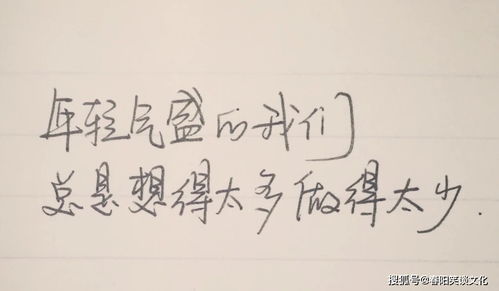 年轻气盛的我们
总是想得太多做得太少.
搜狐号@春阳笑谈文化